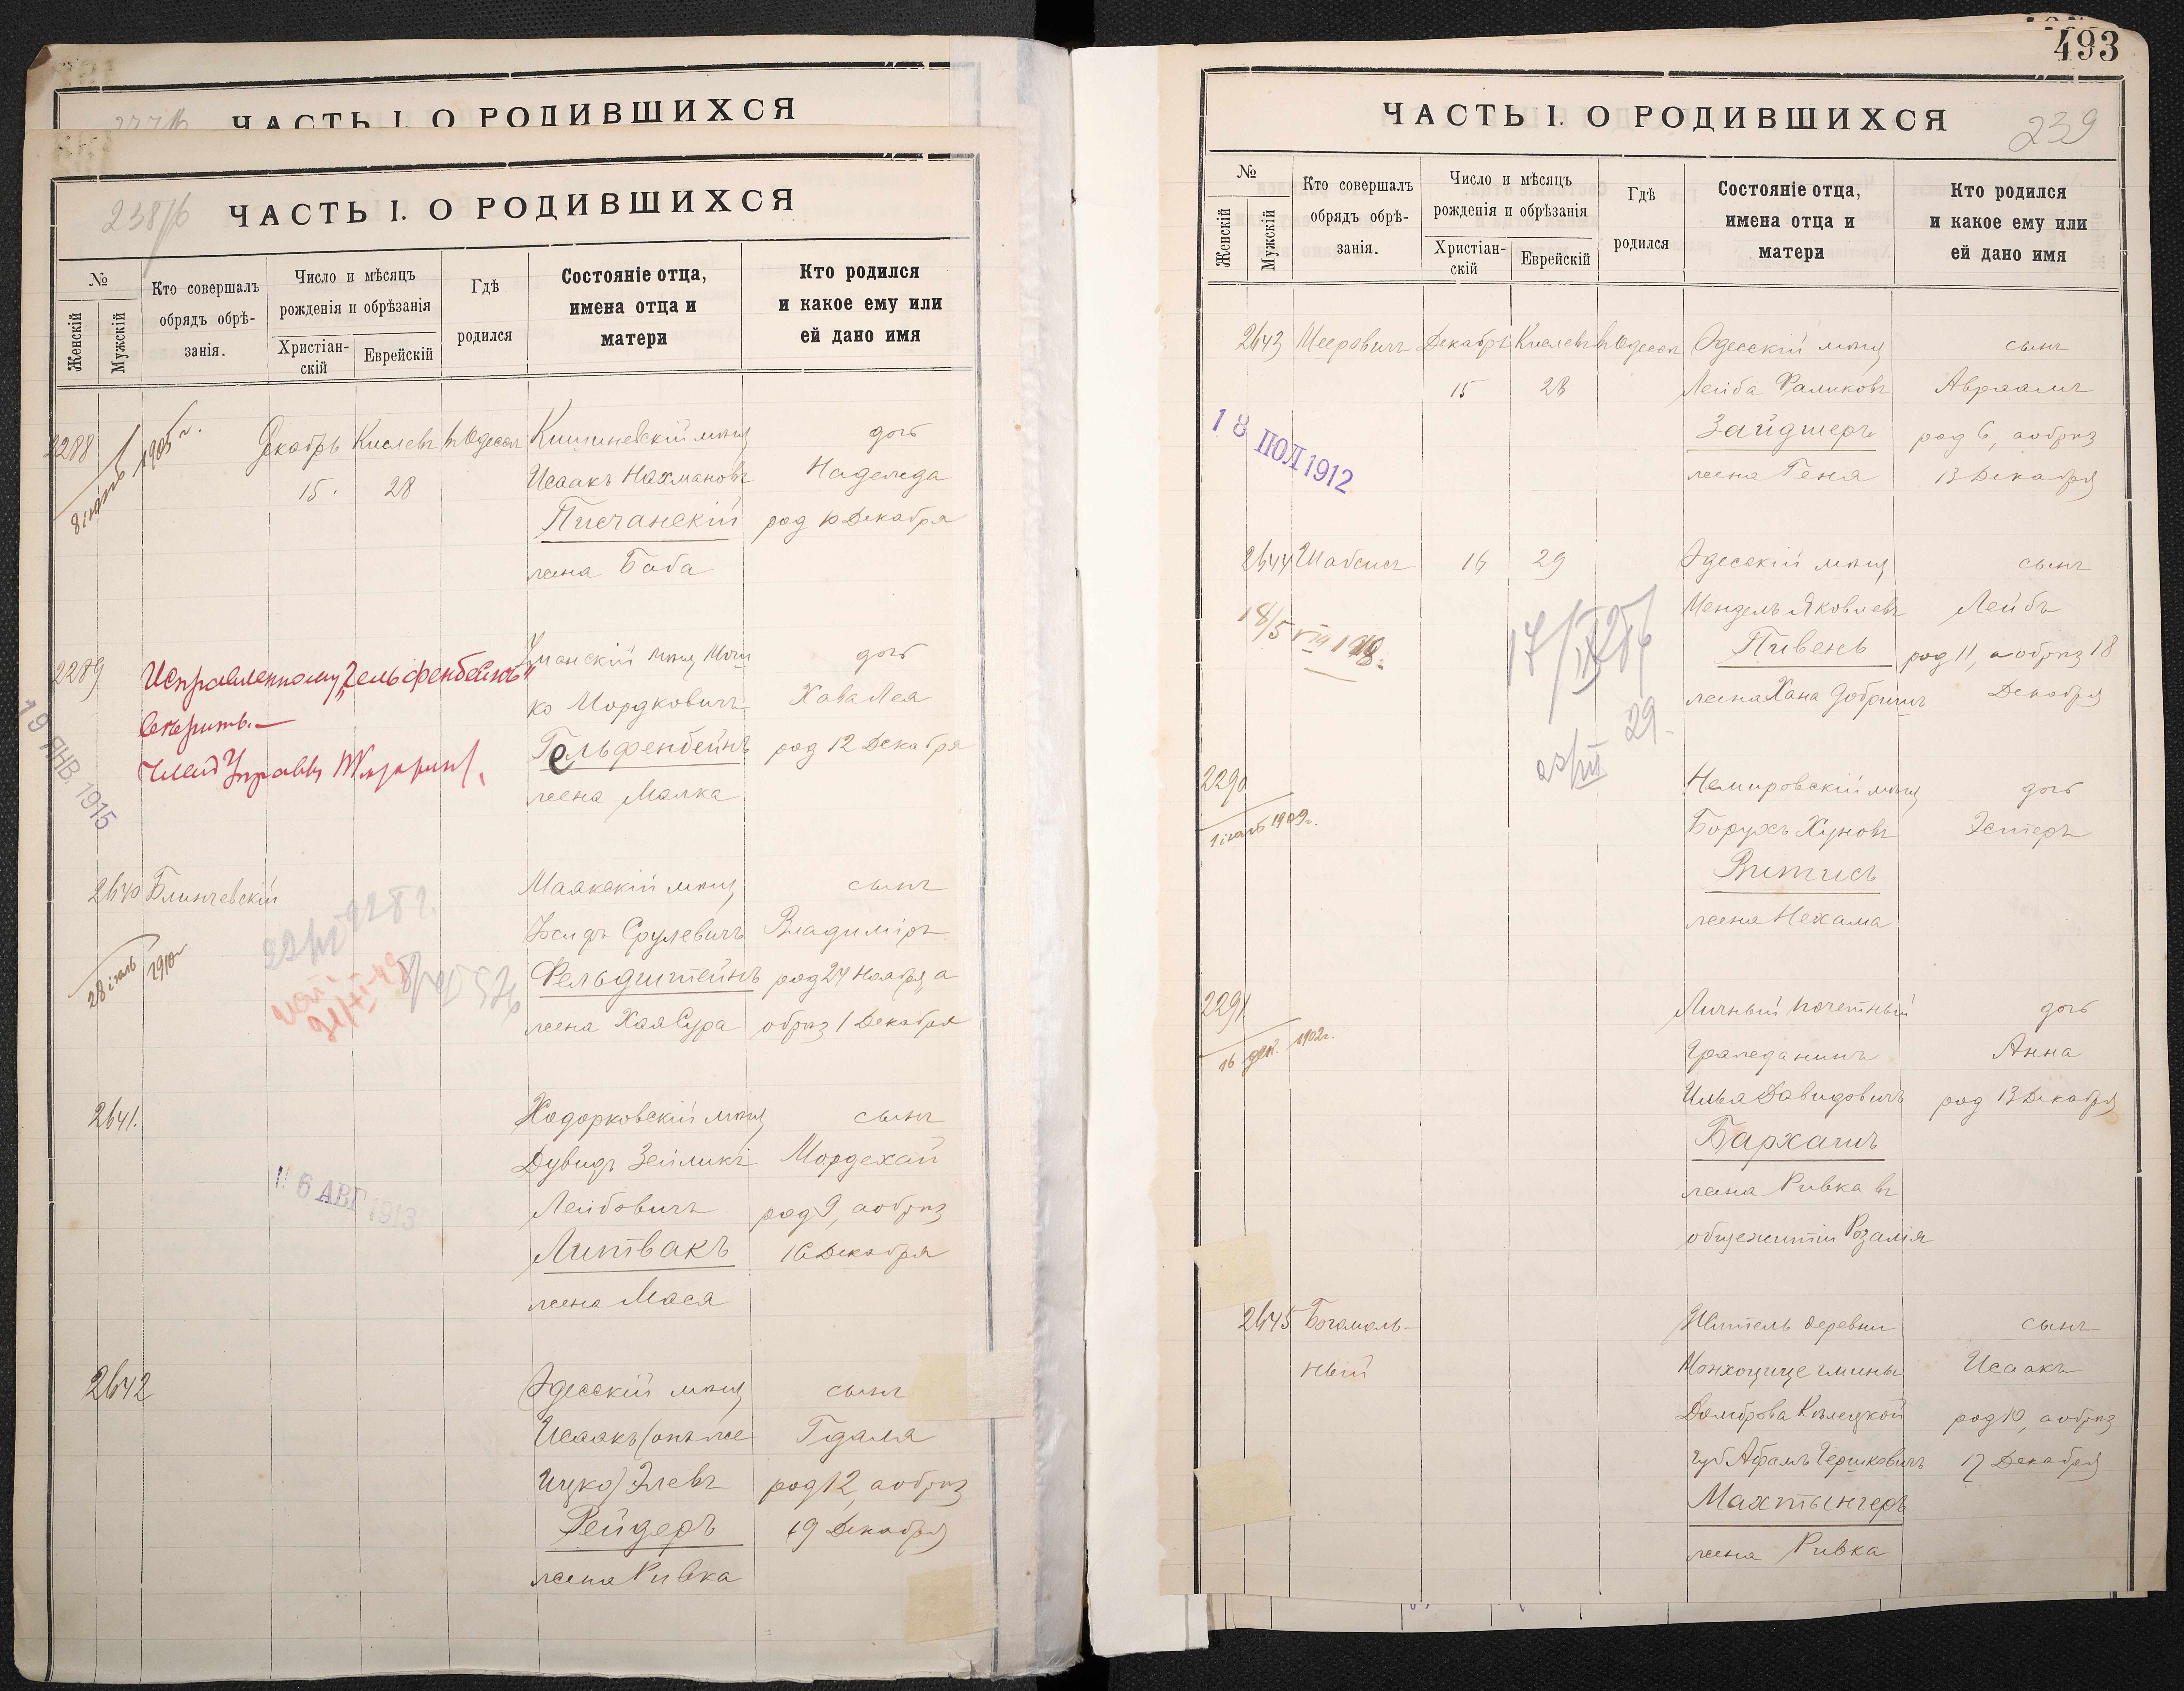 ЧАСТЬ I. О РОДИВШИХСЯ
238/б
ЧАСТЬ I. О РОДИВШИХСЯ
№
Женскій
Мужскій
Кто совершалъ
обрядъ обрѣ-
занія.
Число и мѣсяцъ
рожденія и обрѣзанія
Христіан-
скій
Еврейскій
Гдѣ
родился
Состояніе отца,
имена отца и
матери
Кто родился
и какое ему или
ей дано имя
2288
1905 г.
Декабрь Кислевъ въ Одессѣ
15. 28
Кишиневскій мѣщ
Исаакъ Нахмановъ
Писчанскій
жена Боба
дочь
Надежда
род 10 Декабря
2289
Исправленному "Гельфенбейнъ"
вѣрить.—
Членъ Управы
19 ЯНВ. 1915
Уманскій мѣщ Мош
ко Мордковичъ
Гельфенбейнъ
жена Малка
дочь
Хава Лея
род 12 Декабря
2640 Блинчевскій
28 іюль 1910 г
Маякскій мѣщ
Срулевичъ
Фельдштейнъ
жена Хая Сура
сынъ
Владиміръ
род 24 Ноября, а
обрѣз 1 Декабря
2641.
6 АВГ 1913
Ходорковскій мѣщ
Дувидъ Зейликъ
Лейбовичъ
Литвакъ
жена Мася
сынъ
Мордехай
род 9, а обрѣз
16 Декабря
2642
Одесскій мѣщ
Исаакъ (онъ же
Ицко) Элевъ
Рейдеръ
жена Ривка
сынъ
Гдаля
род 12, а обрѣз
19 Декабря
493
ЧАСТЬ I. О РОДИВШИХСЯ
239
№
Женскій
Мужскій
Кто совершалъ
обрядъ обрѣ-
занія.
Число и мѣсяцъ
рожденія и обрѣзанія
Христіан-
скій
Еврейскій
Гдѣ
родился
Состояніе отца,
имена отца и
матери
Кто родился
и какое ему или
ей дано имя
2643 Мееровичъ Декабрь Кислевъ въ Одессѣ
15 28
18 ІЮЛ 1912
Одесскій мѣщ
Лейба Фаликовъ
Зайдшеръ
жена Геня
сынъ
Авраамъ
род 6, а обрѣз
13 Декабря
2644 Шабсисъ 16 29
Одесскій мѣщ
Мендель Яковлевъ
Пивень
жена Хана Добришъ
сынъ
Лейбъ
род 11, а обрѣз 18
Декабря
2290
1909 г.
Немировскій мѣщ
Борухъ Хуновъ
Витисъ
жена Нехама
дочь
Эстеръ
2291
16 дек. 1902 г.
Личный почетный
гражданинъ
Илья Давидовичъ
Бархашъ
жена Ривка въ
общежитіи Розалія
дочь
Анна
род 13 Декабря
2645 Богомоль-
ный
Житель деревни
гмины
Домброва Кѣлецкой
губ Абрамъ Гершковичъ
Махтынгеръ
жена Ривка
сынъ
Исаакъ
род 10, а обрѣз
17 Декабря